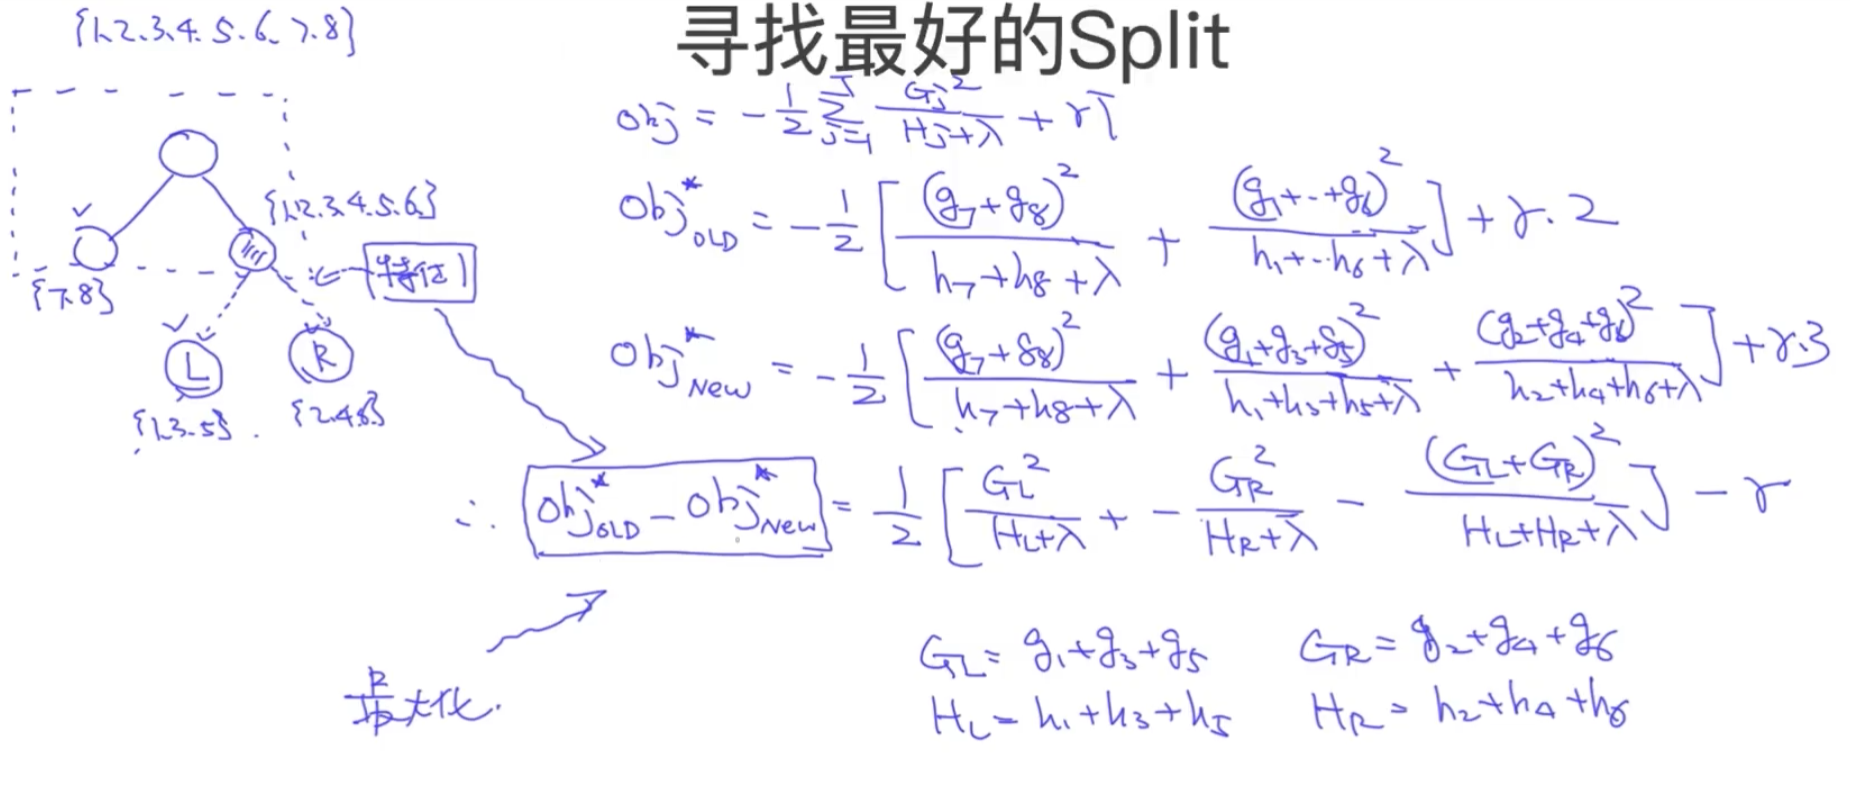 寻找最好的Split
{1.2.3.4.5.6.7.8}
obj = -1/2 Σ_{j=1}^{T} Gj²/(Hj+λ) + γT
{1.2.3.4.5.6}
{7.8}
特征1
L
R
{1.3.5}.
{2.4.6}
Obj*_OLD = -1/2 [ (g7+g8)²/(h7+h8+λ) + (g1+..+g6)²/(h1+..h6+λ) ] + γ.2
Obj*_New = -1/2 [ (g7+g8)²/(h7+h8+λ) + (g1+g3+g5)²/(h1+h3+h5+λ) + (g2+g4+g6)²/(h2+h4+h6+λ) ] + γ.3
∴ Obj*_OLD - Obj*_New = 1/2 [ GL²/(HL+λ) + - GR²/(HR+λ) - (GL+GR)²/(HL+HR+λ) ] - γ
大化.
GL = g1+g3+g5 GR = g2+g4+g6
HL = h1+h3+h5 HR = h2+h4+h6